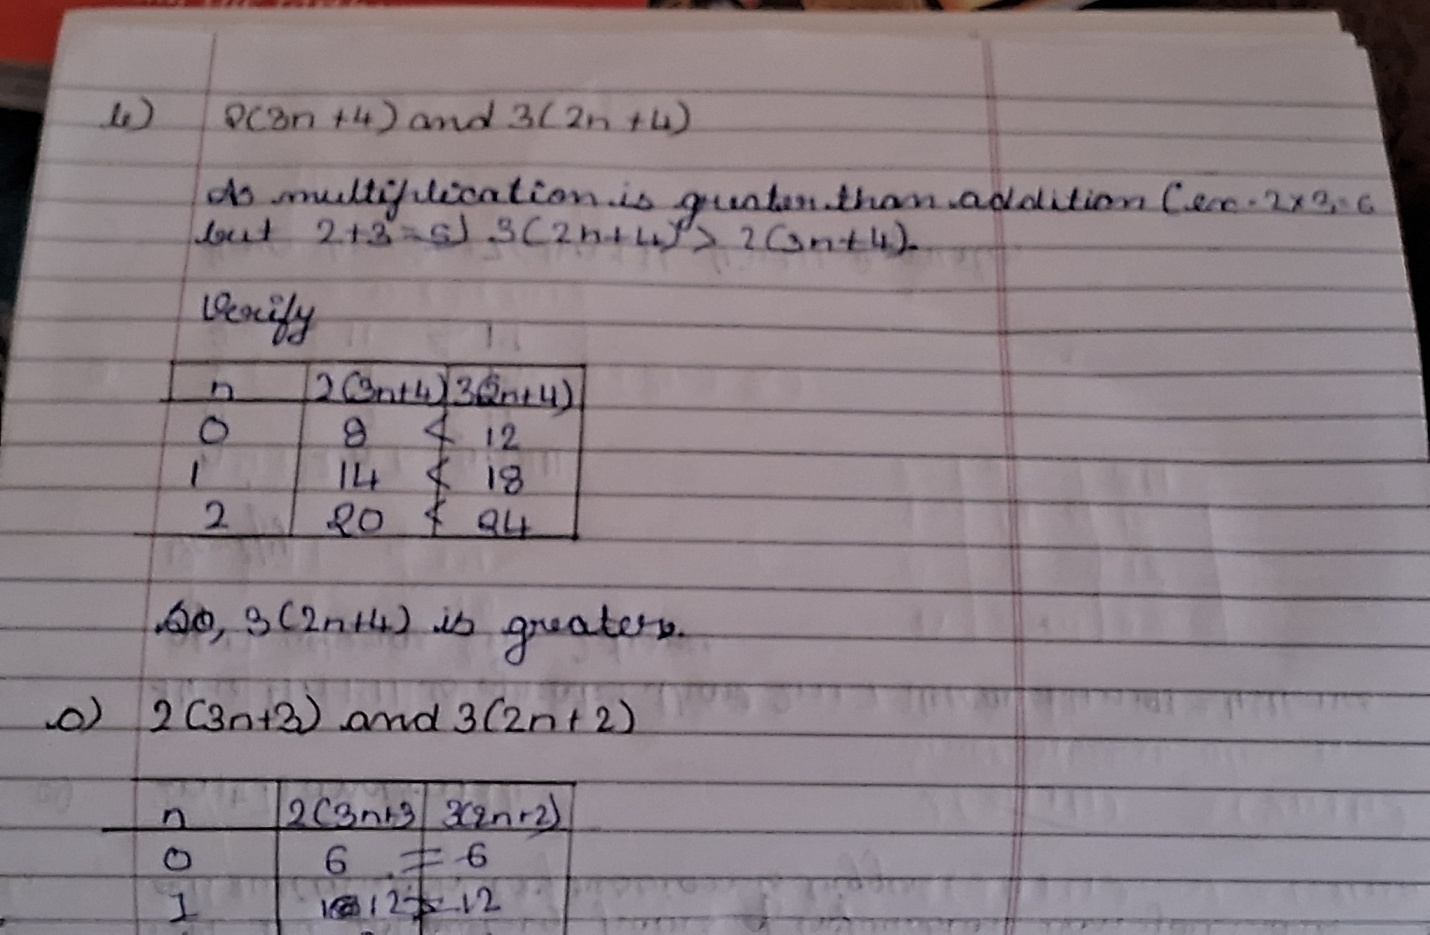 b) 2(3n+4) and 3(2n+4)
As multiplication is greater than addition (ex. 2x3=6
but 2+3=5) 3(2n+4) > 2(3n+4).
Verify
n 2(3n+4) 3(2n+4)
0 8 < 12
1 14 < 18
2 20 < 24
So, 3(2n+4) is greater.
c) 2(3n+3) and 3(2n+2)
n 2(3n+3 3(2n+2)
0 6 = 6
1 12 = 12